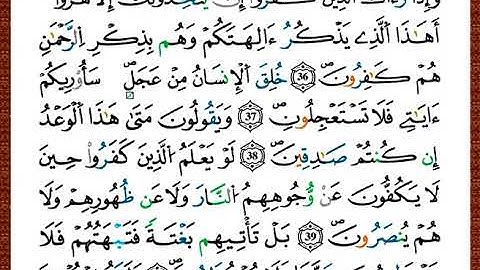 أَهَٰذَا ٱلَّذِي يَذْكُرُ ءَالِهَتَكُمْ وَهُم بِذِكْرِ ٱلرَّحْمَٰنِ
هُمْ كَٰفِرُونَ 36 خُلِقَ ٱلْإِنسَانُ مِنْ عَجَلٍ سَأُوْرِيكُمْ
ءَايَٰتِي فَلَا تَسْتَعْجِلُونِ 37 وَيَقُولُونَ مَتَىٰ هَٰذَا ٱلْوَعْدُ
إِن كُنتُمْ صَٰدِقِينَ 38 لَوْ يَعْلَمُ ٱلَّذِينَ كَفَرُوا۟ حِينَ
لَا يَكُفُّونَ عَن وُّجُوهِهِمُ ٱلنَّارَ وَلَا عَن ظُهُورِهِمْ وَلَا
هُمْ يُنصَرُونَ 39 بَلْ تَأْتِيهِم بَغْتَةً فَتَبْهَتُهُمْ فَلَا